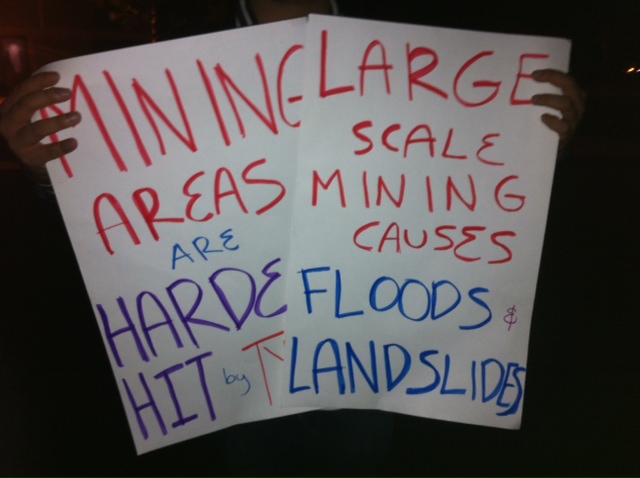 MINING
AREAS
ARE
HARDE
HIT by T
LARGE
SCALE
MINING
CAUSES
FLOODS &
LANDSLIDES